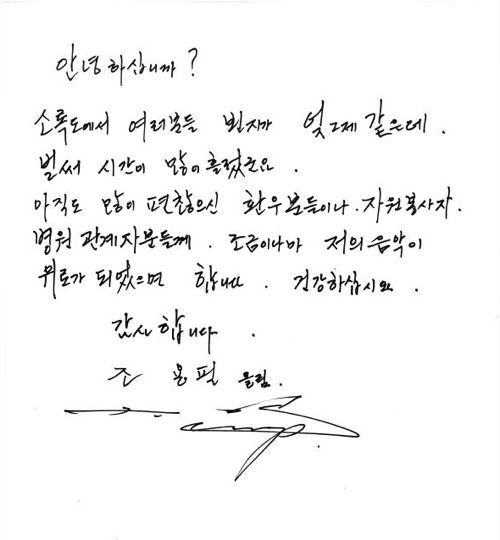 안녕하십니까?
소록도에서 여러분들 뵌지가 엊그제 같은데.
벌써 시간이 많이 흘렀군요.
아직도 많이 편찮으신 환우분들이나. 자원봉사자.
병원 관계자분들께. 조금이나마 저의 음악이
위로가 되었으면 합니다. 건강하십시요.
감사합니다.
조 용 필 올림.